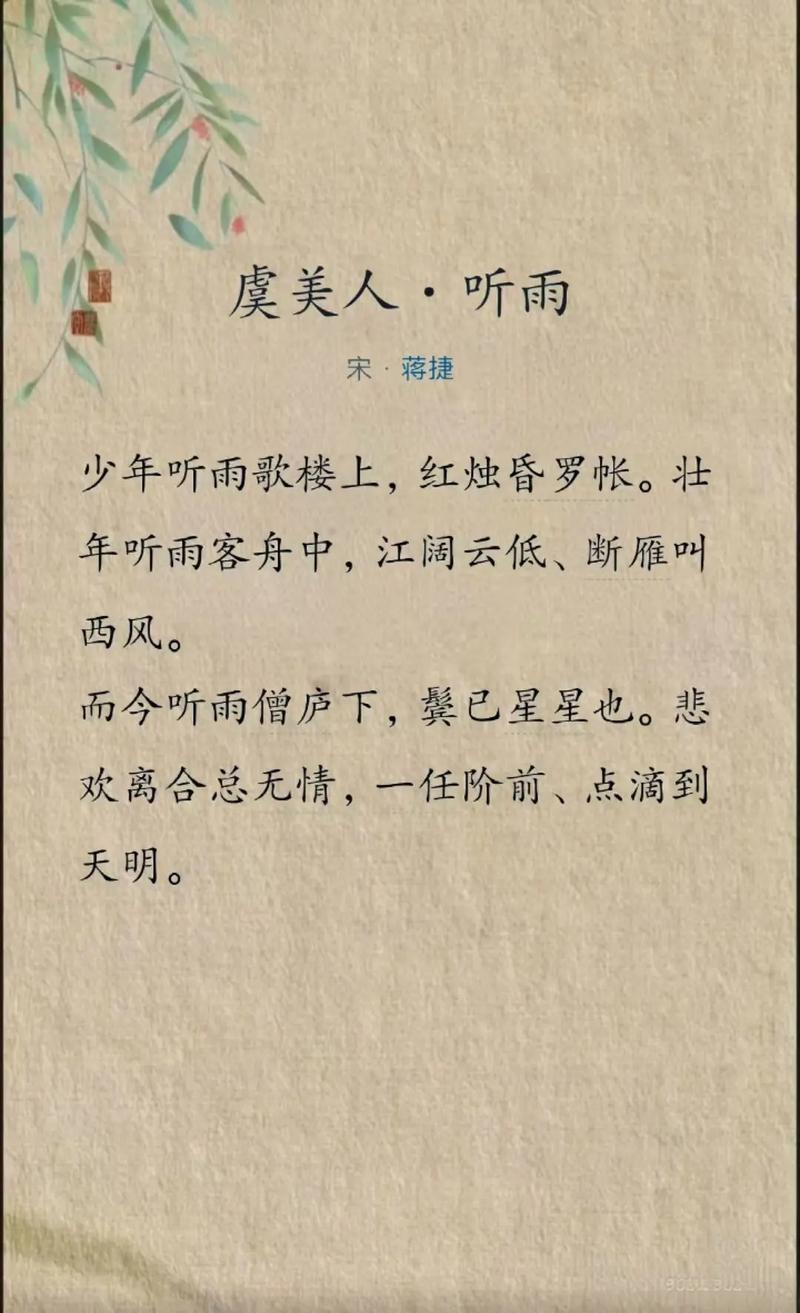 虞美人·听雨
宋·蒋捷
少年听雨歌楼上，红烛昏罗帐。壮
年听雨客舟中，江阔云低、断雁叫
西风。
而今听雨僧庐下，鬓已星星也。悲
欢离合总无情，一任阶前、点滴到
天明。